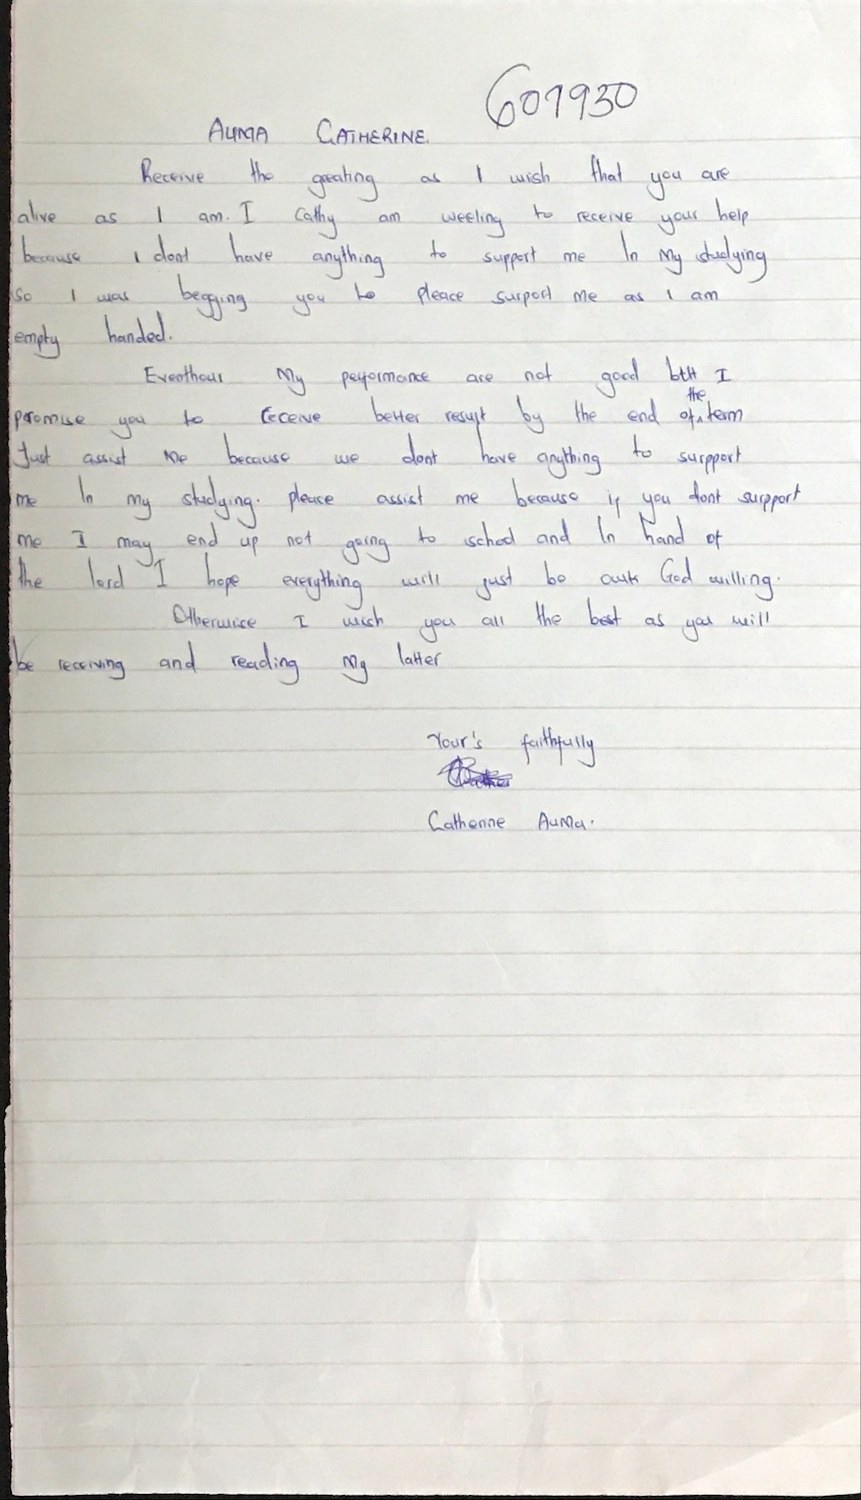 601930
AUMA CATHERINE.
Receive the greating as I wish that you are
alive as I am. I Cathy am weeling to receive your help
because I dont have anything to support me In My studying
so I was begging you to pleace surport me as I am
empty handed.
Eventhour My performance are not good but I
promise you to receive better result by the end of the term
Just assist me because we dont have anything to surpport
me In my studying. please assist me because if you dont surpport
me I may end up not going to school and In hand of
the lord I hope everything will just be God willing.
Otherwise I wish you all the best as you will
be receiving and reading My latter
Your's faithfully
Catherine AuMa.